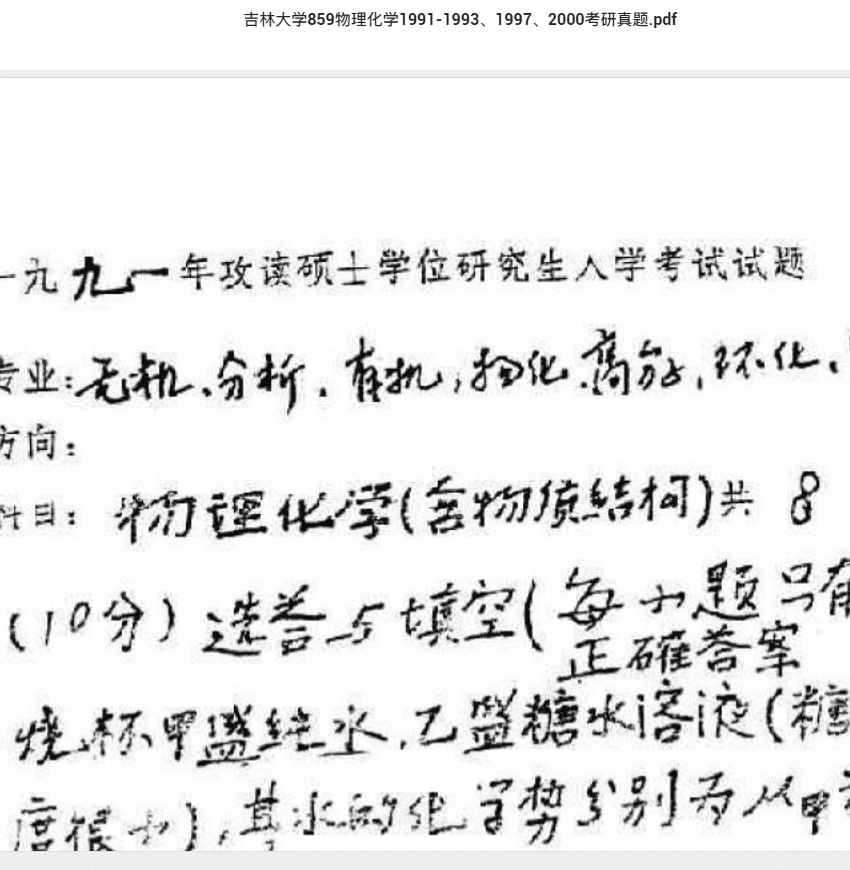 吉林大学859物理化学1991-1993、1997、2000考研真题.pdf
一九九一年攻读硕士学位研究生入学考试试题
专业:无机、分析、有机,物化、高分子,环化、
方向:
科目:物理化学(含物质结构)共 8
(10分)选答与填空(每小题只有
正确答案
烧杯甲盛纯水,乙盛糖水溶液(糖
度很小),其水的化学势分别为从甲